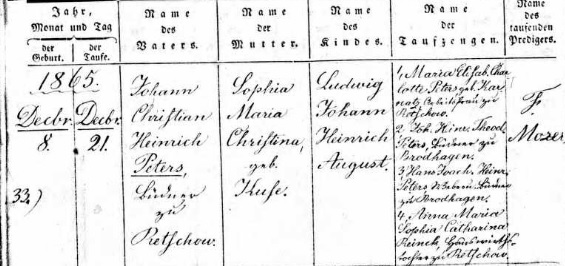 Jahr,
Monat und Tag
der
Geburt.
der
Taufe.
Name
des
Vaters.
Name
der
Mutter.
Name
des
Kindes.
Name
der
Taufzeugen.
Name
des
taufenden
Predigers.
1865.
Decbr. Decbr.
8. 21.
33.)
Johann
Christian
Heinrich
Peters,
Büdner
zu
Retschow.
Sophia
Maria
Christina,
geb.
Kuse.
Ludwig
Johann
Heinrich
August.
1, Maria Elisab. Char
lotte Peters geb. Kar
natz, Arbeitsfrau zu
Retschow.
2, Joh. Hinr. Theod.
Peters, Büdner zu
Brodhagen.
3, Hans Joach. Heinr.
Peters, Büdner
zu Brodhagen.
4, Anna Maria
Sophia Catharina
Reincke, Hauswirths
tochter zu Retschow.
F.
Mozer